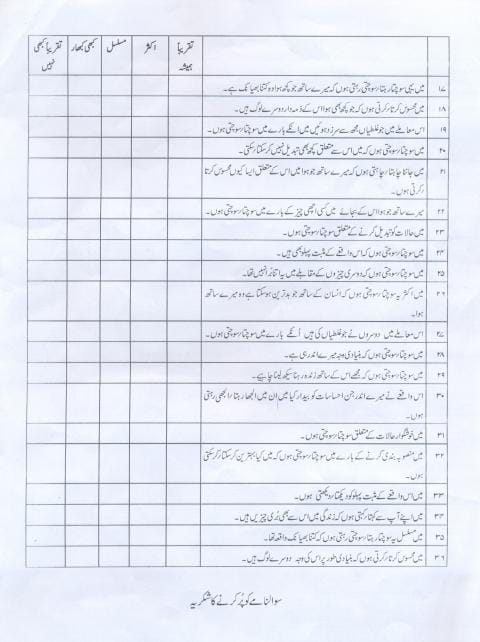 تقریباً ہمیشہ اکثر مسلسل کبھی کبھار تقریباً کبھی نہیں
۱۷ میں یہی سوچتا رہتا/سوچتی رہتی ہوں کہ میرے ساتھ جو کچھ ہوا وہ کتنا بھیانک ہے۔
۱۸ میں محسوس کرتا/کرتی ہوں کہ جو کچھ بھی ہوا اس کے ذمہ دار دوسرے لوگ ہیں۔
۱۹ اس معاملے میں جو غلطیاں مجھ سے سرزد ہوئیں میں انکے بارے میں سوچتا/سوچتی ہوں۔
۲۰ میں سوچتا/سوچتی ہوں کہ میں اس سے متعلق کچھ بھی تبدیل نہیں کرسکتا/سکتی۔
۲۱ میں جاننا چاہتا/چاہتی ہوں کہ میرے ساتھ جو ہوا میں اس کے متعلق ایسا کیوں محسوس کرتا
/کرتی ہوں۔
۲۲ میرے ساتھ جو ہوا اس کے بجائے میں کسی اچھی چیز کے بارے میں سوچتا/سوچتی ہوں۔
۲۳ میں حالات کو تبدیل کرنے کے متعلق سوچتا/سوچتی ہوں۔
۲۴ میں سوچتا/سوچتی ہوں کہ اس واقعے کے مثبت پہلو بھی ہیں۔
۲۵ میں سوچتا/سوچتی ہوں کہ دوسری چیزوں کے مقابلے میں یہ اتنا بُرا نہیں تھا۔
۲۶ میں اکثر یہ سوچتا/سوچتی ہوں کہ انسان کے ساتھ جو بدترین ہوسکتا ہے وہ میرے ساتھ
ہوا۔
۲۷ اس معاملے میں دوسروں نے جو غلطیاں کی ہیں اُنکے بارے میں سوچتا/سوچتی ہوں۔
۲۸ میں سوچتا/سوچتی ہوں کہ بنیادی وجہ میرے اندر ہی ہے۔
۲۹ میں سوچتا/سوچتی ہوں کہ مجھے اس کے ساتھ زندہ رہنا سیکھ لینا چاہیے۔
۳۰ اس واقعے نے میرے اندر جن احساسات کو بیدار کیا میں ان میں الجھا رہتا/الجھی رہتی
ہوں۔
۳۱ میں خوشگوار حالات کے متعلق سوچتا/سوچتی ہوں۔
۳۲ میں منصوبہ بندی کرنے کے بارے میں سوچتا/سوچتی ہوں کہ میں کیا بہترین کرسکتا/کرسکتی
ہوں۔
۳۳ میں اس واقعے کے مثبت پہلو کو دیکھتا/دیکھتی ہوں۔
۳۴ میں اپنے آپ سے کہتا/کہتی ہوں کہ زندگی میں اس سے بھی بُری چیزیں ہیں۔
۳۵ میں مسلسل یہ سوچتا رہتا/سوچتی رہتی ہوں کہ کتنا بھیانک واقعہ تھا۔
۳۶ میں محسوس کرتا/کرتی ہوں کہ بنیادی طور پر اس کی وجہ دوسرے لوگ ہیں۔
سوالنامے کو پُر کرنے کا شکریہ